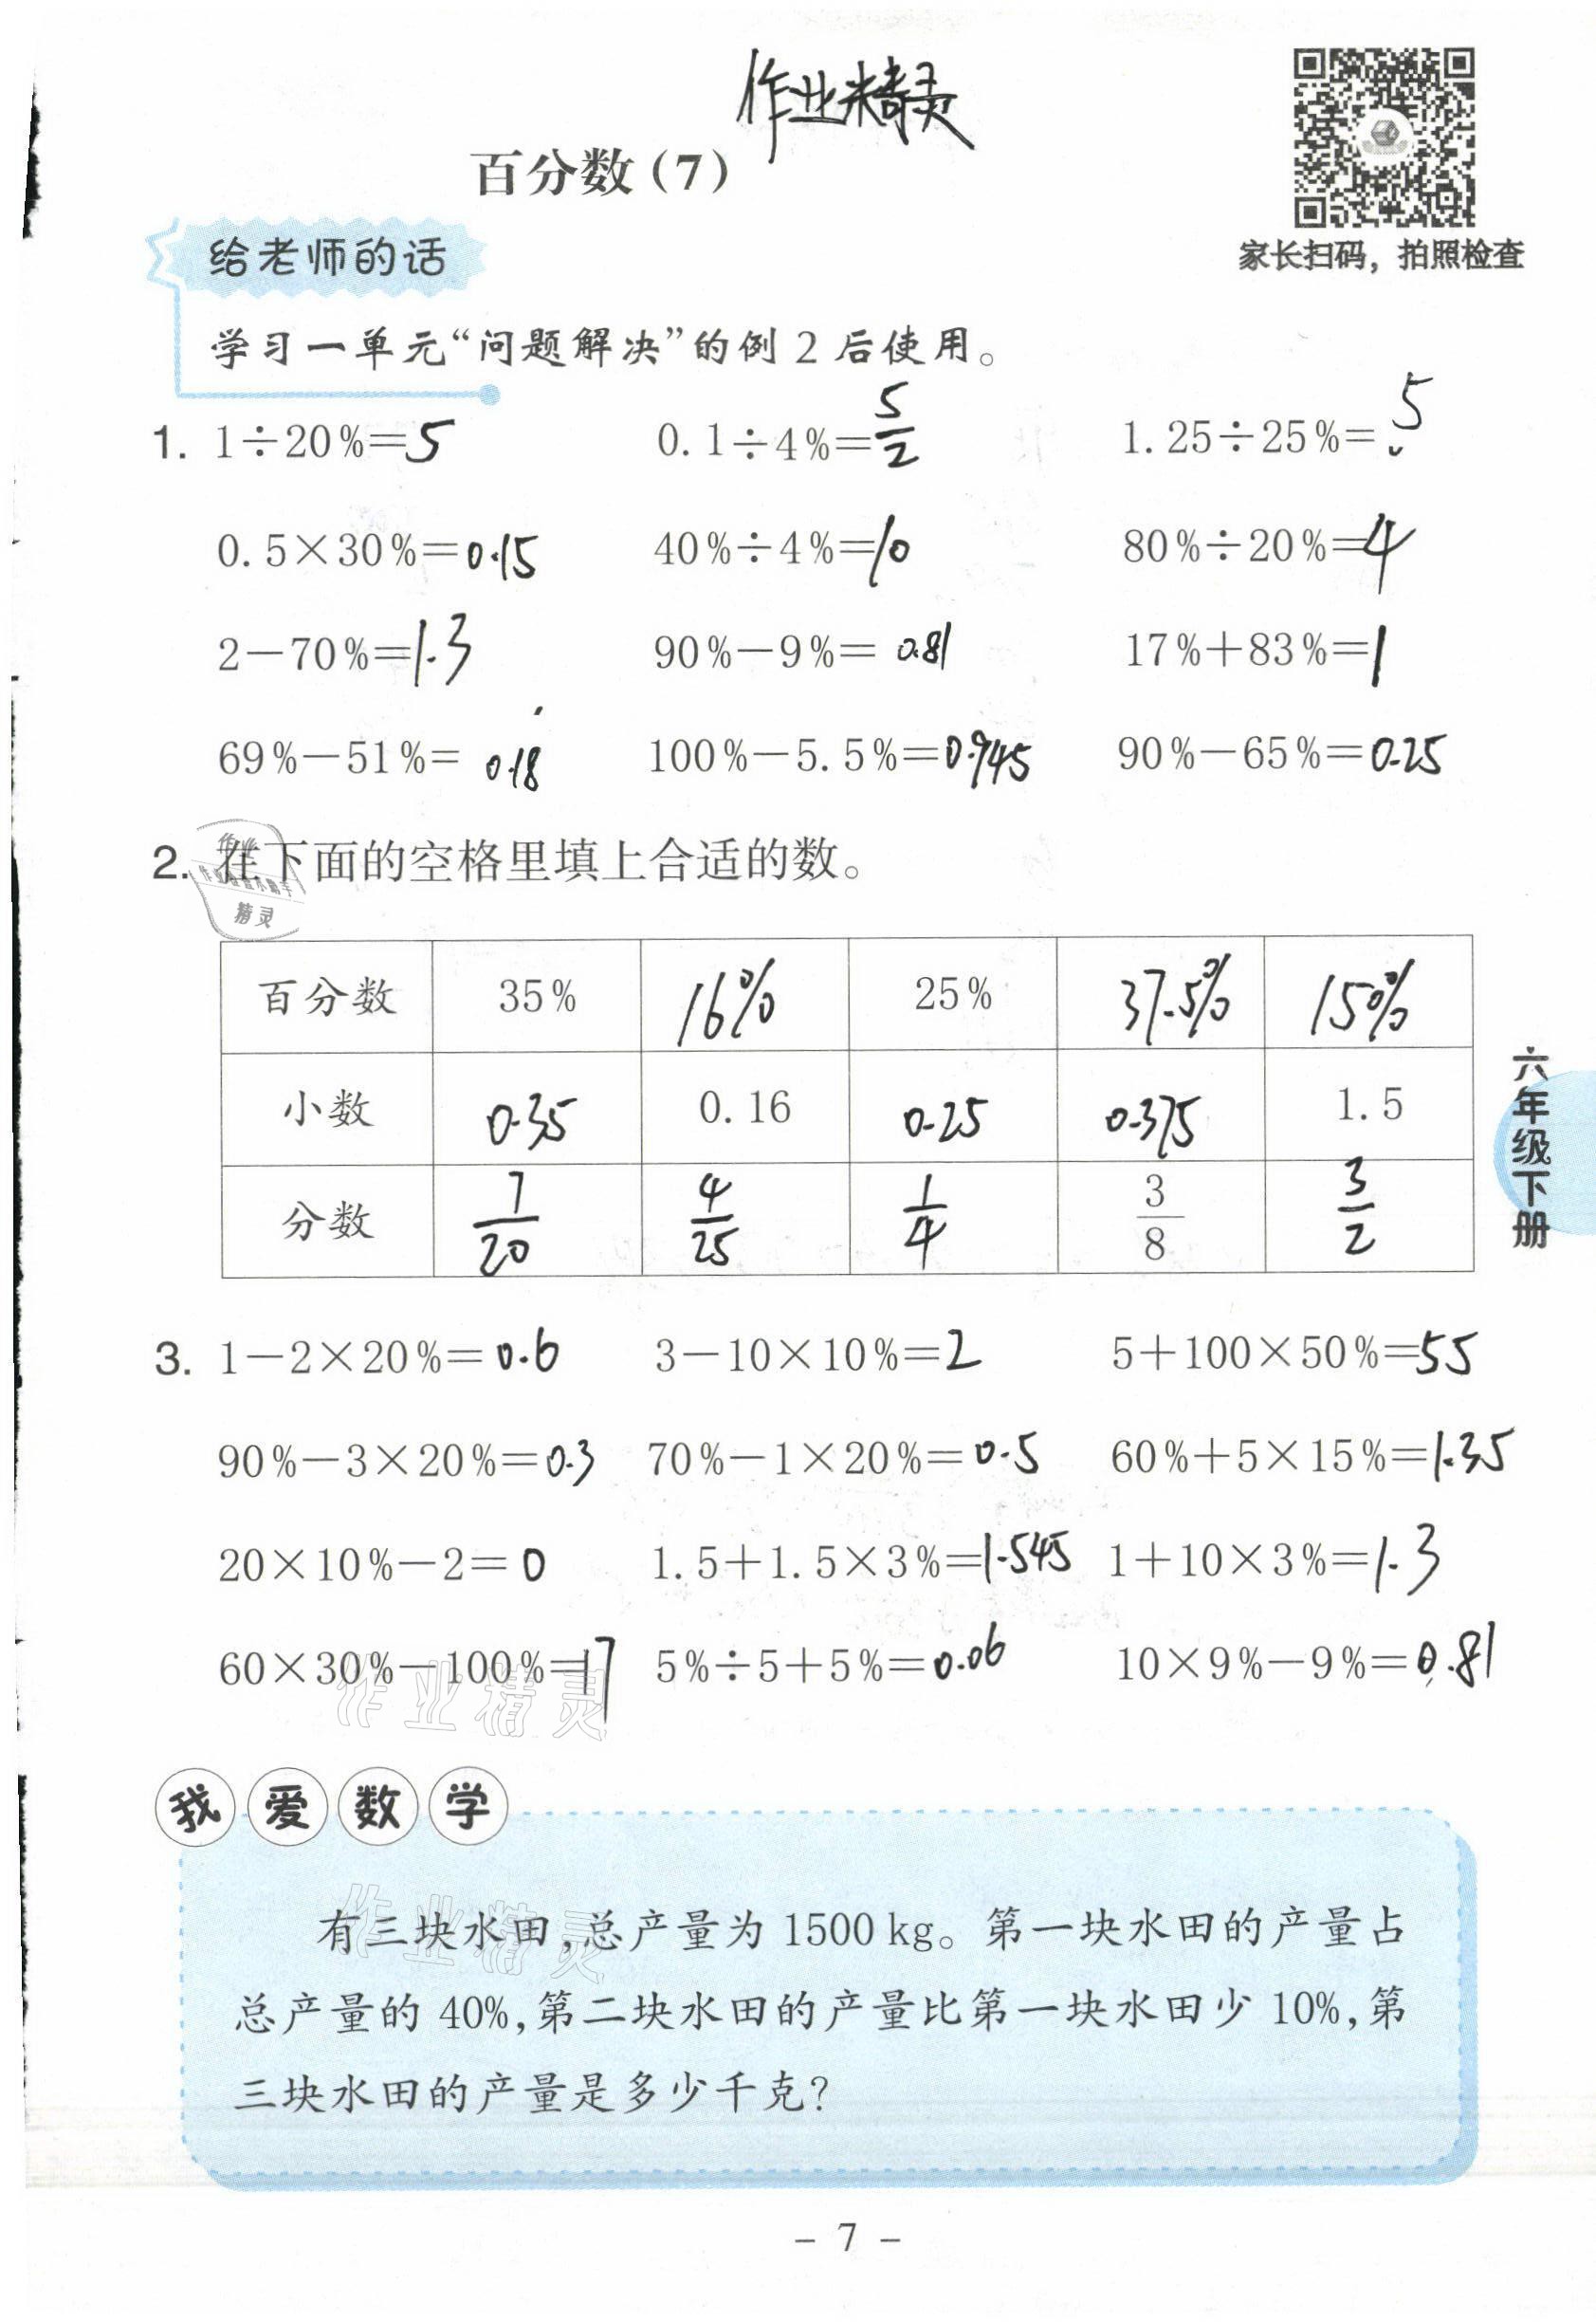 作业精灵
百分数(7)
家长扫码,拍照检查
给老师的话
学习一单元“问题解决”的例2后使用。
1. 1÷20%=5 0.1÷4%=5/2 1.25÷25%=5
0.5×30%=0.15 40%÷4%=10 80%÷20%=4
2-70%=1.3 90%-9%=0.81 17%+83%=1
69%-51%=0.18 100%-5.5%=0.945 90%-65%=0.25
2. 在下面的空格里填上合适的数。
百分数 35% 16% 25% 37.5% 15%
小数 0.35 0.16 0.25 0.375 1.5
分数 7/20 4/25 1/4 3/8 3/2
六年级下册
3. 1-2×20%=0.6 3-10×10%=2 5+100×50%=55
90%-3×20%=0.3 70%-1×20%=0.5 60%+5×15%=1.35
20×10%-2=0 1.5+1.5×3%=1.545 1+10×3%=1.3
60×30%-100%=17 5%÷5+5%=0.06 10×9%-9%=0.81
作业精灵
我爱数学
作业精灵
有三块水田,总产量为1500 kg。第一块水田的产量占
总产量的40%,第二块水田的产量比第一块水田少10%,第
三块水田的产量是多少千克?
- 7 -